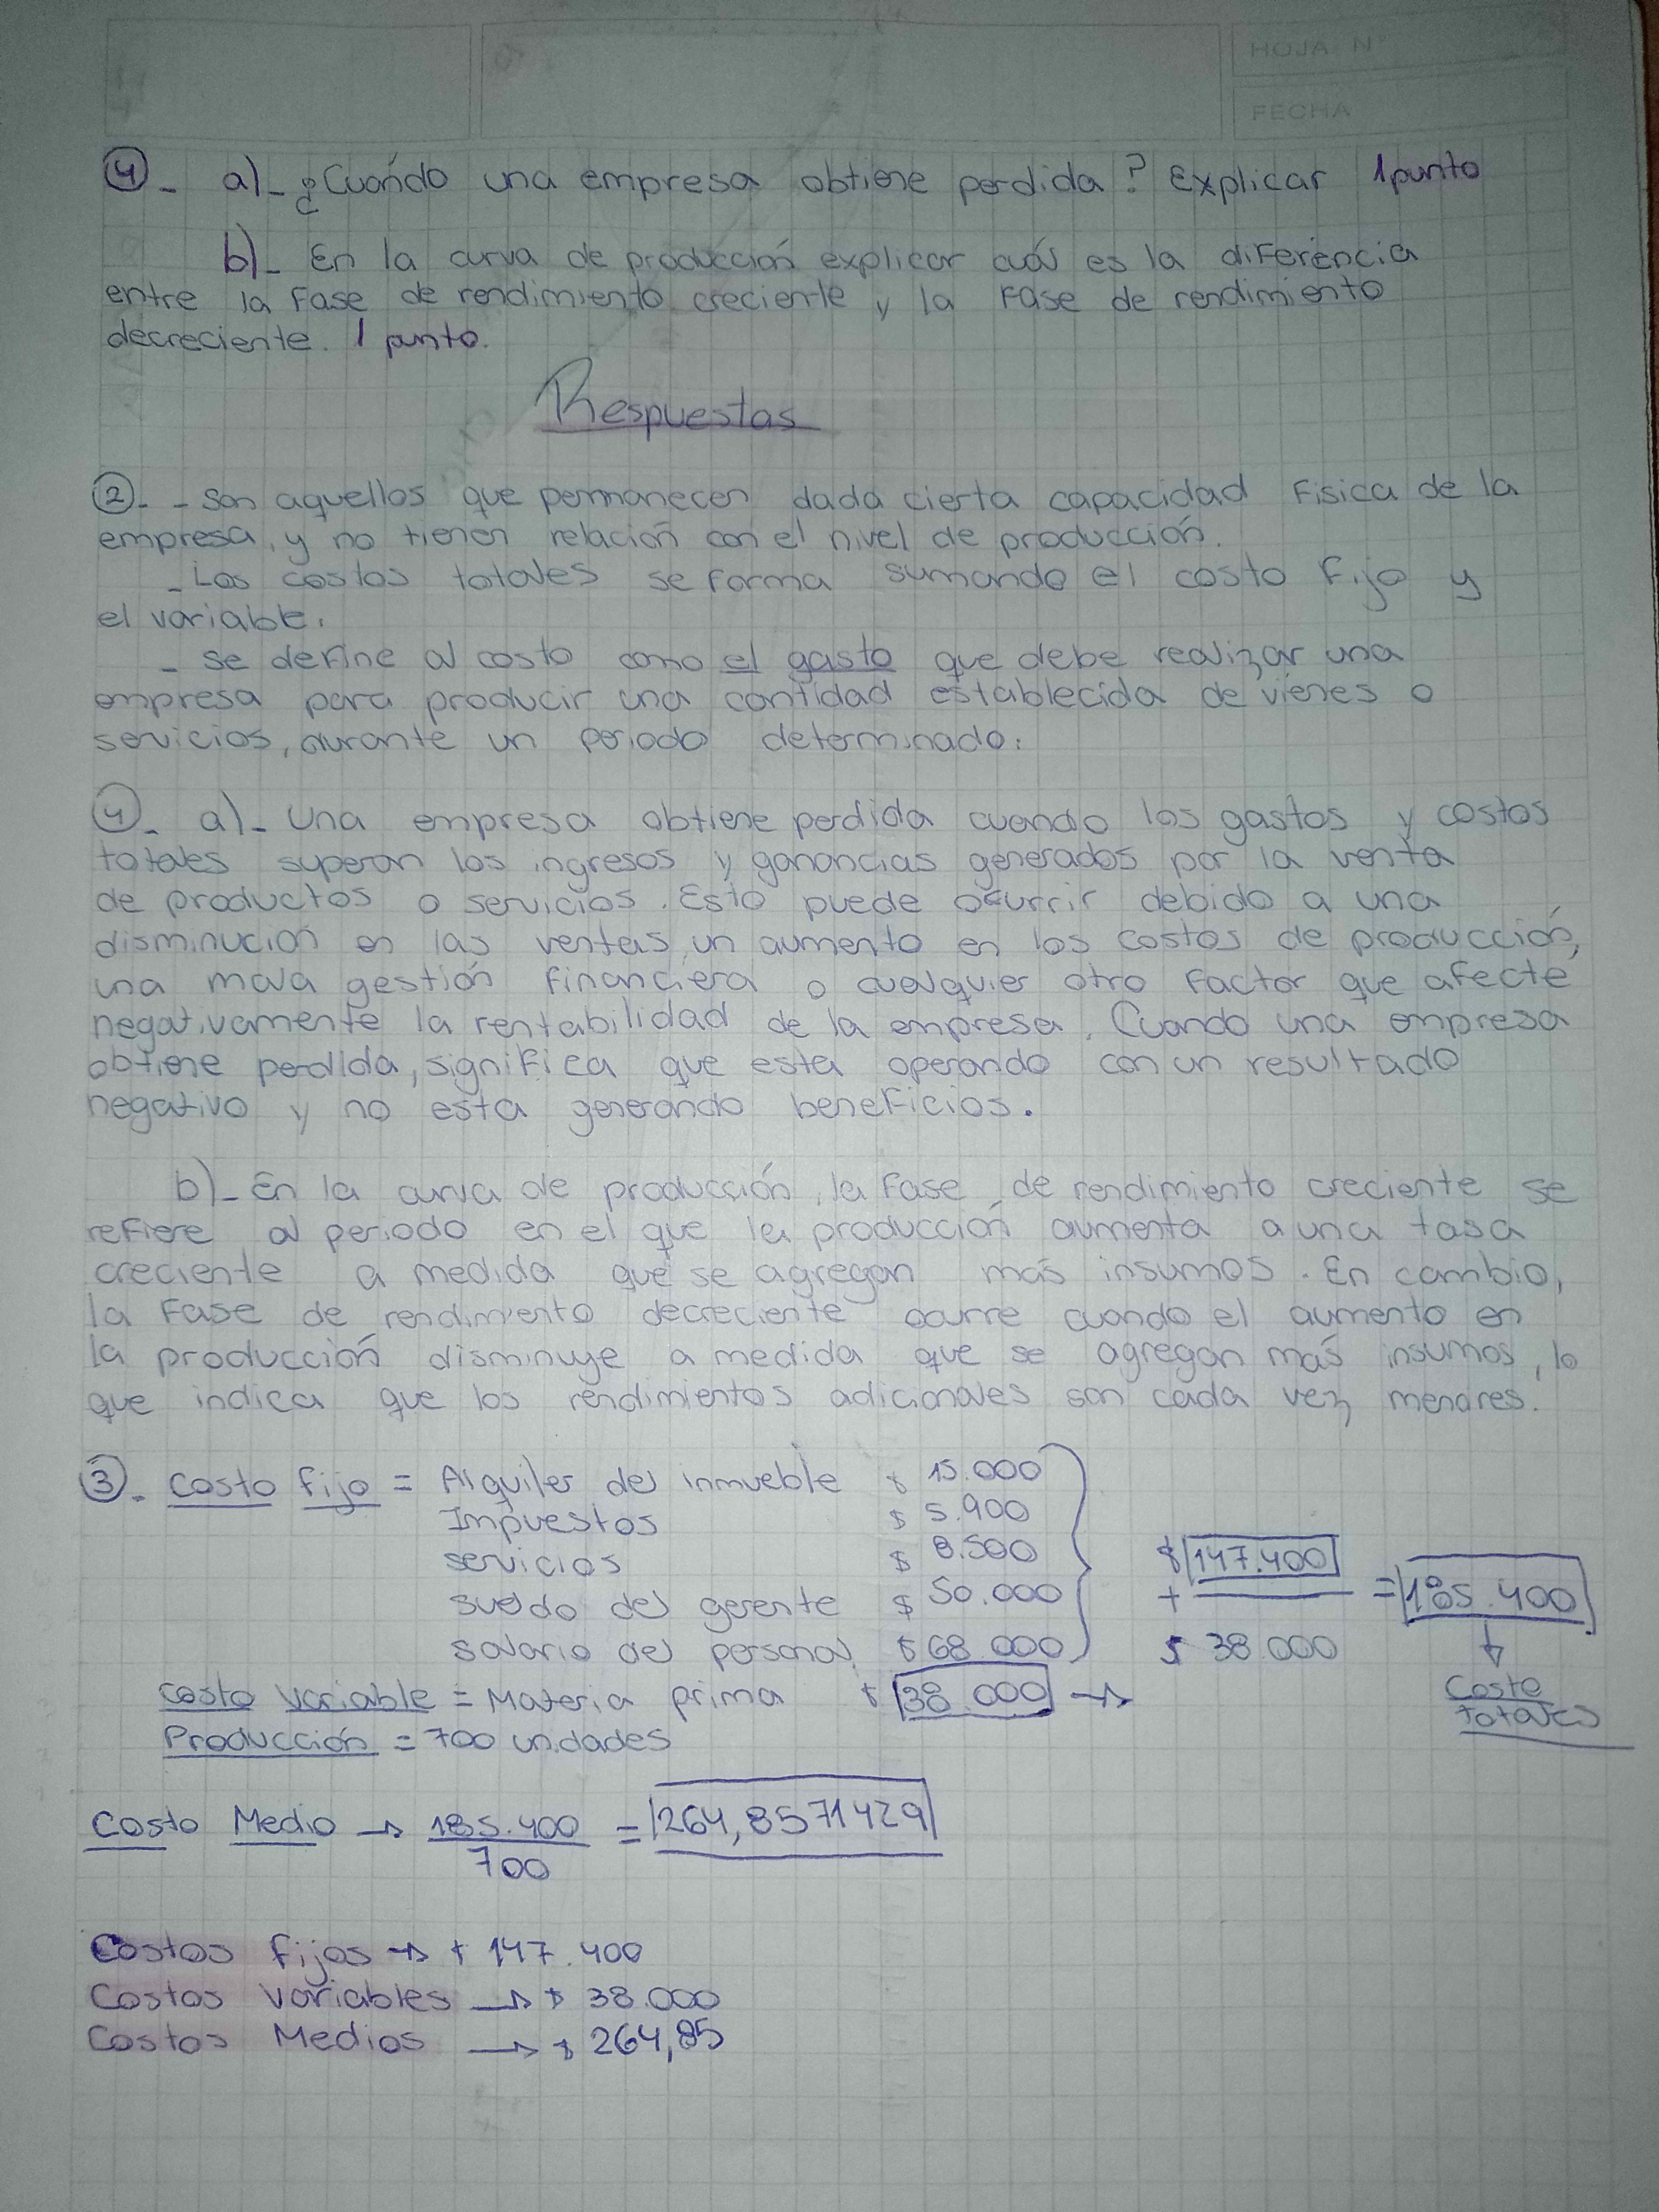 HOJA N°
FECHA
4- a)- ¿Cuándo una empresa obtiene perdida? Explicar 1 punto
b)- En la curva de producción explicar cuál es la diferencia
entre la Fase de rendimiento creciente y la Fase de rendimiento
decreciente. 1 punto.
Respuestas
2. - Son aquellos que permanecen dada cierta capacidad Fisica de la
empresa, y no tienen relación con el nivel de producción.
- Los costos totales se forma sumando el costo Fijo y
el variable.
- Se define al costo como el gasto que debe realizar una
empresa para producir una cantidad establecida de vienes o
servicios, durante un periodo determinado.
4. a)- Una empresa obtiene perdida cuando los gastos y costos
totales superan los ingresos y ganancias generados por la venta
de productos o servicios. Esto puede ocurrir debido a una
disminución en las ventas, un aumento en los costos de producción,
una mala gestión financiera o cualquier otro Factor que afecte
negativamente la rentabilidad de la empresa. Cuando una empresa
obtiene perdida, significa que esta operando con un resultado
negativo y no esta generando beneficios.
b)- En la curva de producción, la Fase de rendimiento creciente se
refiere al periodo en el que la producción aumenta a una tasa
creciente a medida que se agregan más insumos. En cambio,
la Fase de rendimiento decreciente ocurre cuando el aumento en
la producción disminuye a medida que se agregan más insumos, lo
que indica que los rendimientos adicionales son cada vez menores.
3. Costo fijo = Alquiler del inmueble $ 15.000
Impuestos $ 5.900
servicios $ 8.500 $ 147.400
sueldo del gerente $ 50.000 + = 185.400
salario del personal $ 68.000 $ 38.000
Costo Variable = Materia prima $ 38.000 → Costo
Producción = 700 unidades totales
Costo Medio → 185.400 = 264,8571429
700
Costos fijos → $ 147.400
Costos Variables → $ 38.000
Costos Medios → $ 264,85